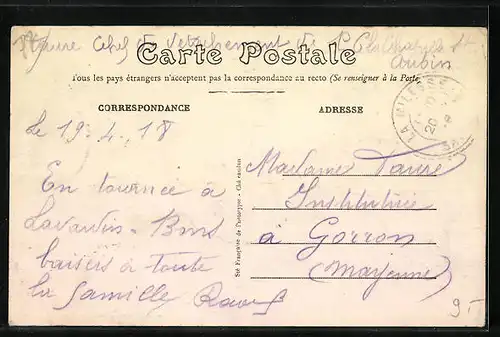 Faure chef de détachement de
St Aubin
Carte Postale
Tous les pays étrangers n'acceptent pas la correspondance au recto (Se renseigner à la Poste)
CORRESPONDANCE
ADRESSE
LA MILESSE
20
Le 19.4.18
Madame Faure
En tournée à
Institutrice
Lavardin - Bons
à Gorron
baisers à toute
(Mayenne)
la famille Raoul
Sté Française de Phototypie - Cité
9.-